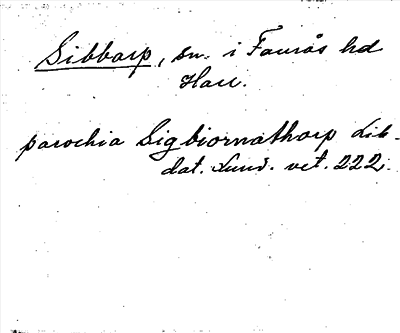 Sibbarp, sn. i Faurås hd
Hall.
parochia Sigbiornathorp Lib.
dat. Lund. vet. 222.